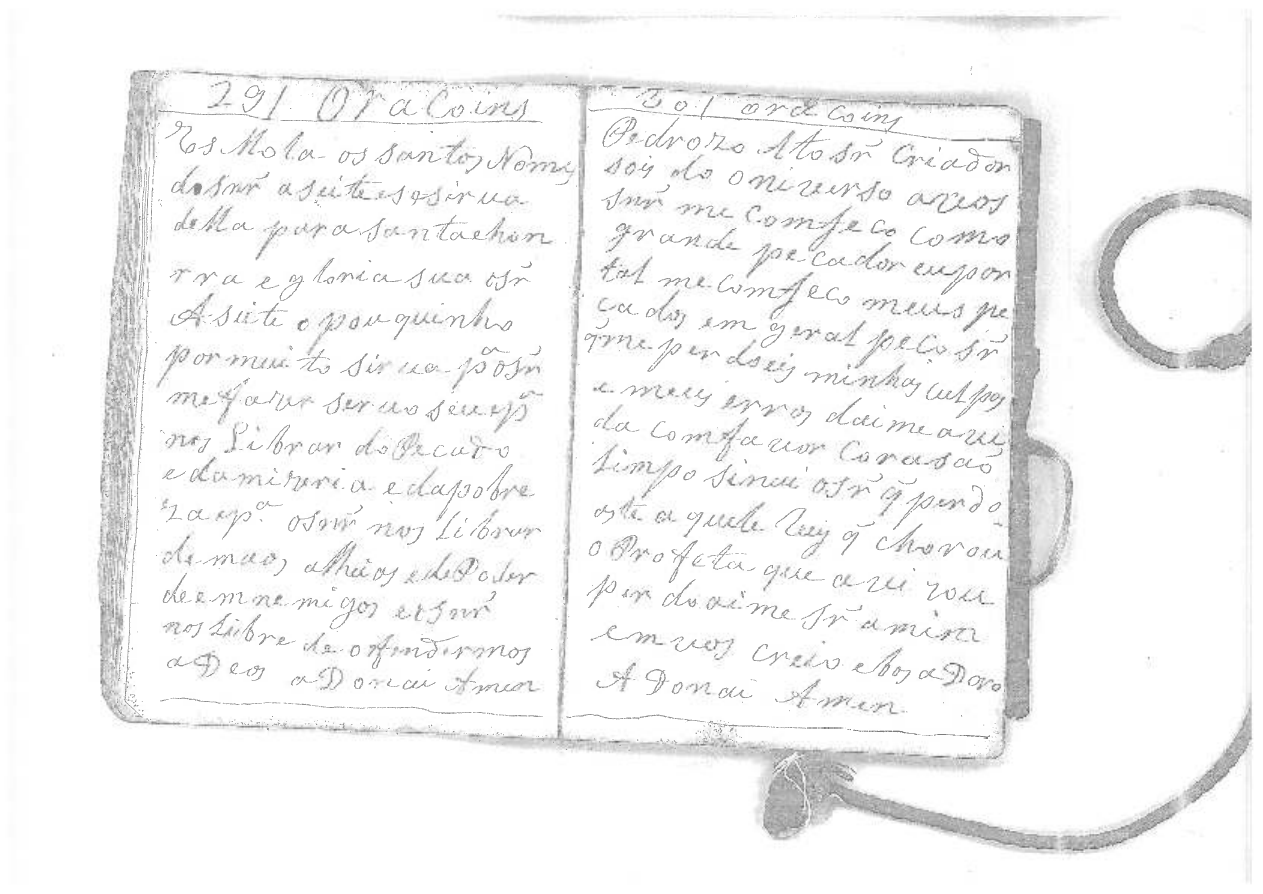 291 Oracoins
Esmola os santos Nomes
do snr̃ aseite es o sirua
della para santa e hon
rra e gloria sua osr̃
Aseite o pouquinho
por muito sirua pª osr̃
me fazer seruo seu epª
nos Librar do Pecado
e da mizeria e da pobre
za epª. osnr̃ nos Librar
de maos alheas e de Poder
de emnemigos e osnr̃
nos Libre de ofendermos
a Deos aDonai Amen
301 oracoins
Pedrozo Alto sr̃ Criador
sois do oniverso avos
snr̃ me comfeco como
grande pecador eu por
tal me comfeco meus pe
cados em geral peco sr̃
q̃ me perdoeis minhas culpas
e meus erros daime avi
da com favor Corasaõ
Limpo sinai osr̃ q̃ perdo
aste a quele Rey q̃ chorou
o Profeta que avizou
perdoaime sr̃ amim
em vos creio e bos aDoro
A Donai Amen